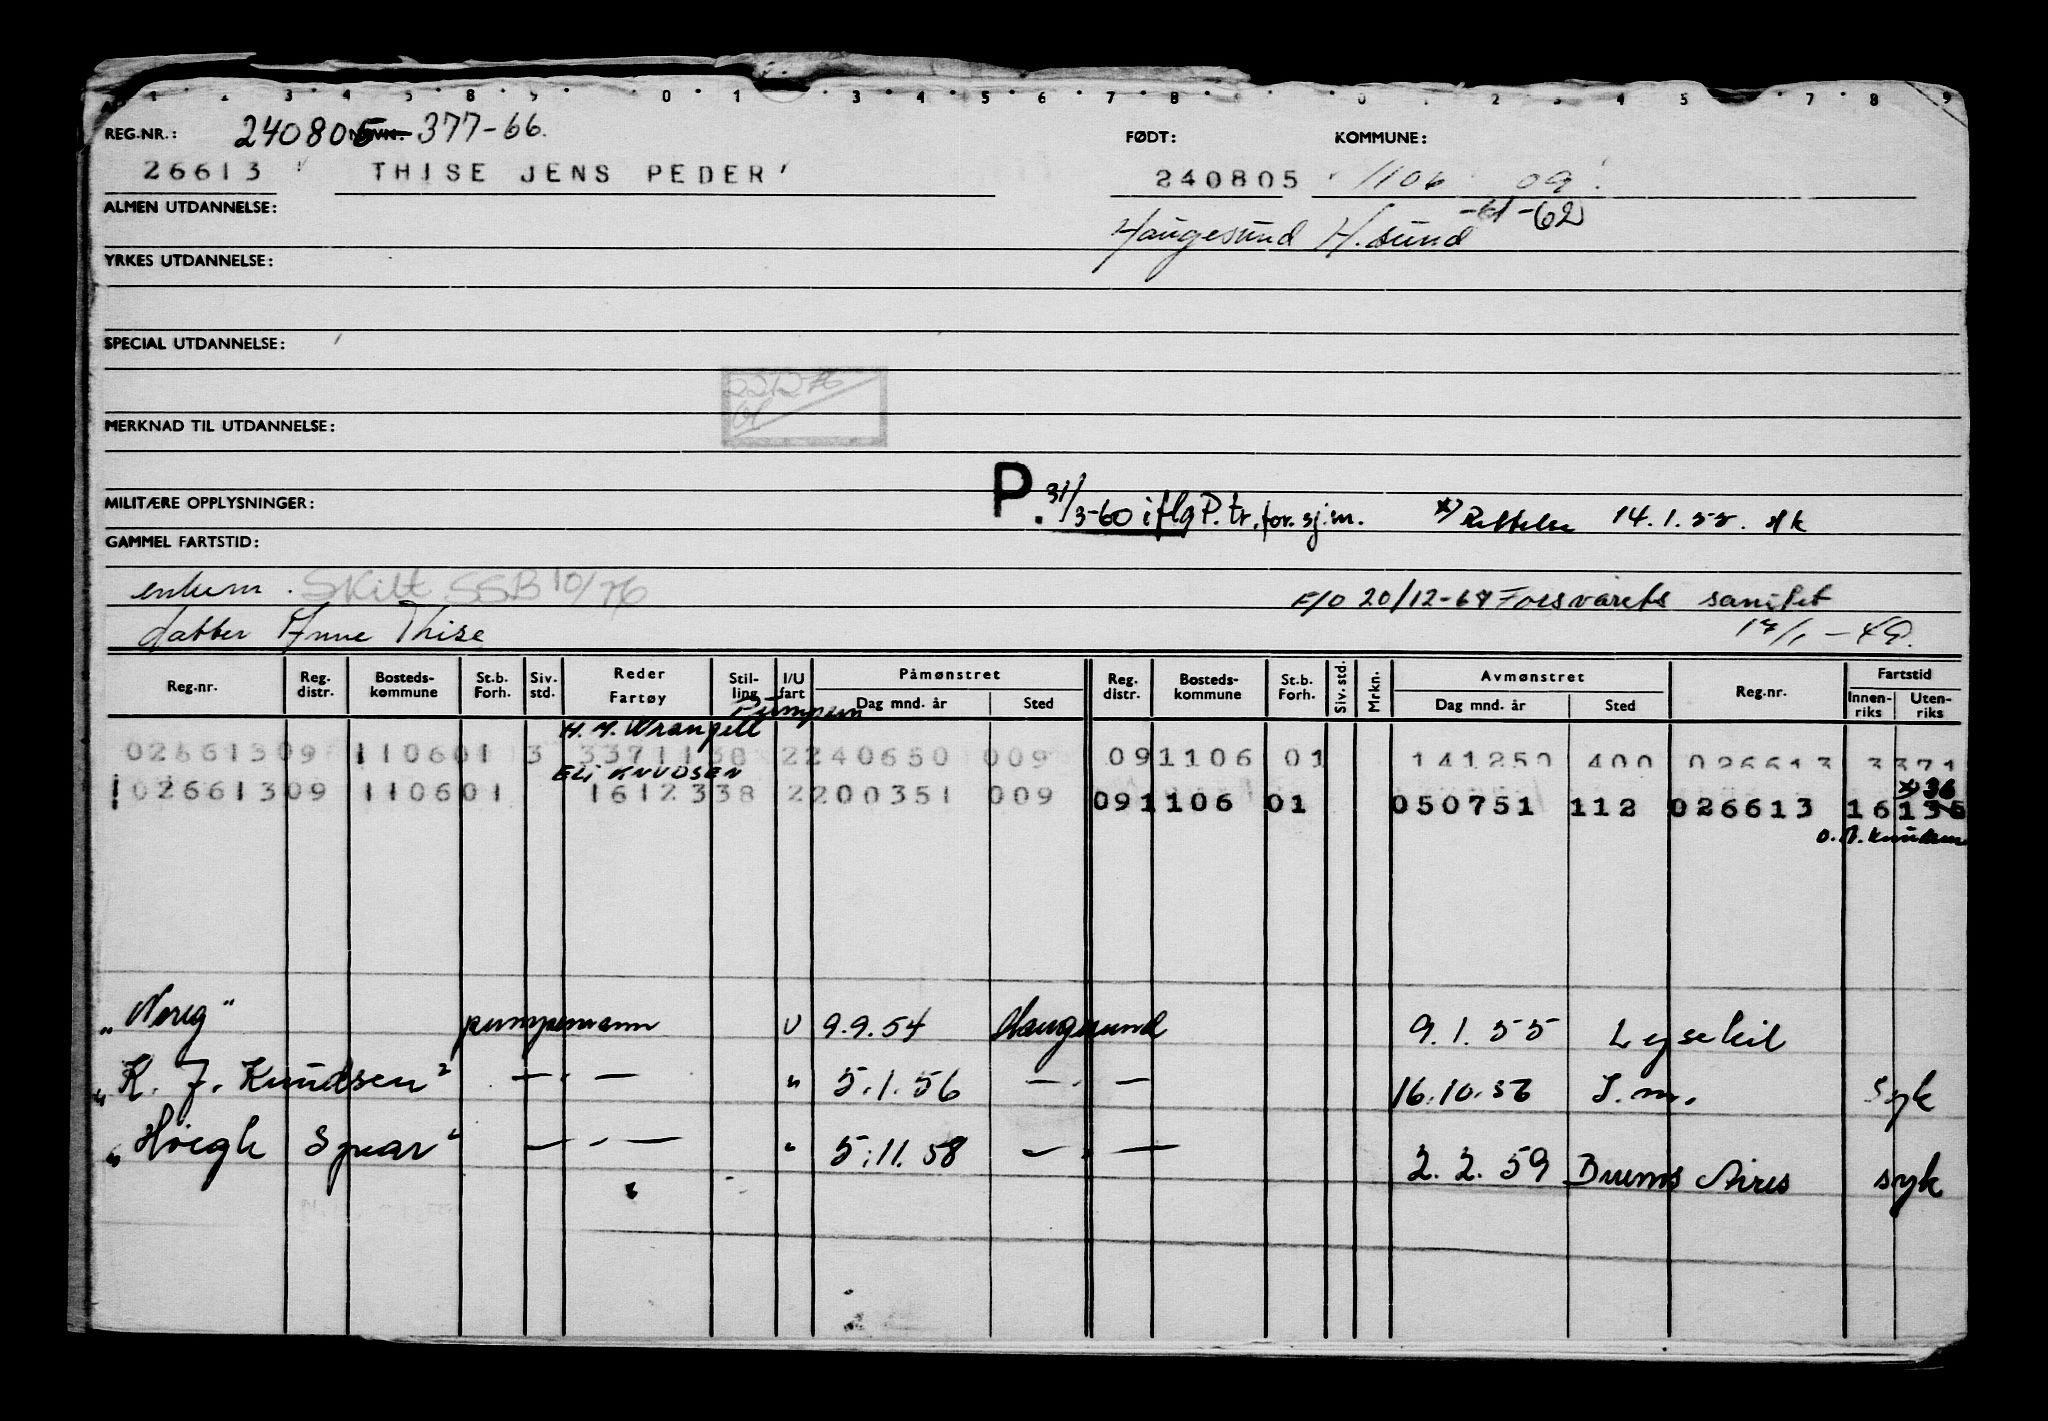 REG.NR.: 240805 377-66. FØDT: KOMMUNE:
26613 THISE JENS PEDER 240805 1106 09
ALMEN UTDANNELSE: -61-62
Haugesund H.sund
YRKES UTDANNELSE:
SPECIAL UTDANNELSE:
MERKNAD TIL UTDANNELSE:
MILITÆRE OPPLYSNINGER: P. 31/3-60 iflg P.tr. for. sj.m. x) Rettelse 14.1.55.
GAMMEL FARTSTID:
enkem. Skilt SSB 10/76 F/O 20/12-67 Forsvarets sanitet
datter Anne Thise 17/1-49.
Reg.nr. Reg. distr. Bosteds-kommune St.b. Forh. Siv. std. Reder Fartøy Stil-ling I/U fart Påmønstret Dag mnd. år Sted Reg. distr. Bosteds-kommune St.b. Forh. Siv. std. Mrkn. Avmønstret Dag mnd. år Sted Reg.nr. Fartstid Innen-riks Uten-riks
H. M. Wrangell Pumpem
026613 09 1106 01 3 3371138 2 240650 009 09 1106 01 141250 400 026613 3371
Eli KNUDSEN x) 36
026613 09 1106 01 1612338 2 200351 009 09 1106 01 050751 112 026613 16136
O. A. Knudsen
"Nereg" pumpemann U 9.9.54 Haugesund 9.1.55 Lysekil
"K. J. Knudsen" — . — " 5.1.56 — . — 16.10.56 S.m. syk
"Höegh Spear" — . — " 5.11.58 — . — 2.2.59 Buenos Aires syk